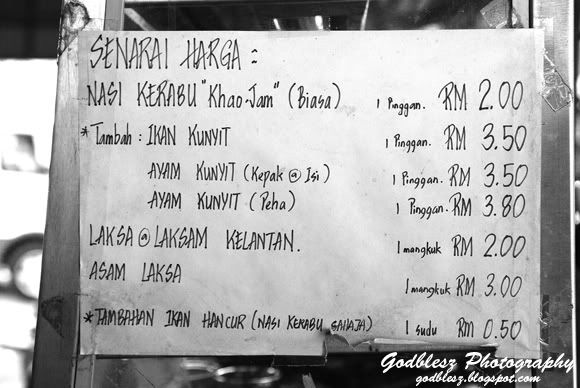 SENARAI HARGA :
NASI KERABU "Khao-Jam" (Biasa) 1 Pinggan. RM 2.00
*Tambah : IKAN KUNYIT 1 Pinggan. RM 3.50
AYAM KUNYIT (Kepak @ Isi) 1 Pinggan. RM 3.50
AYAM KUNYIT (Peha) 1 Pinggan. RM 3.80
LAKSA @ LAKSAM KELANTAN. 1 mangkuk RM 2.00
ASAM LAKSA 1 mangkuk RM 3.00
*TAMBAHAN IKAN HANCUR (NASI KERABU SAHAJA) 1 sudu RM 0.50
Godblesz Photography
godblesz.blogspot.com